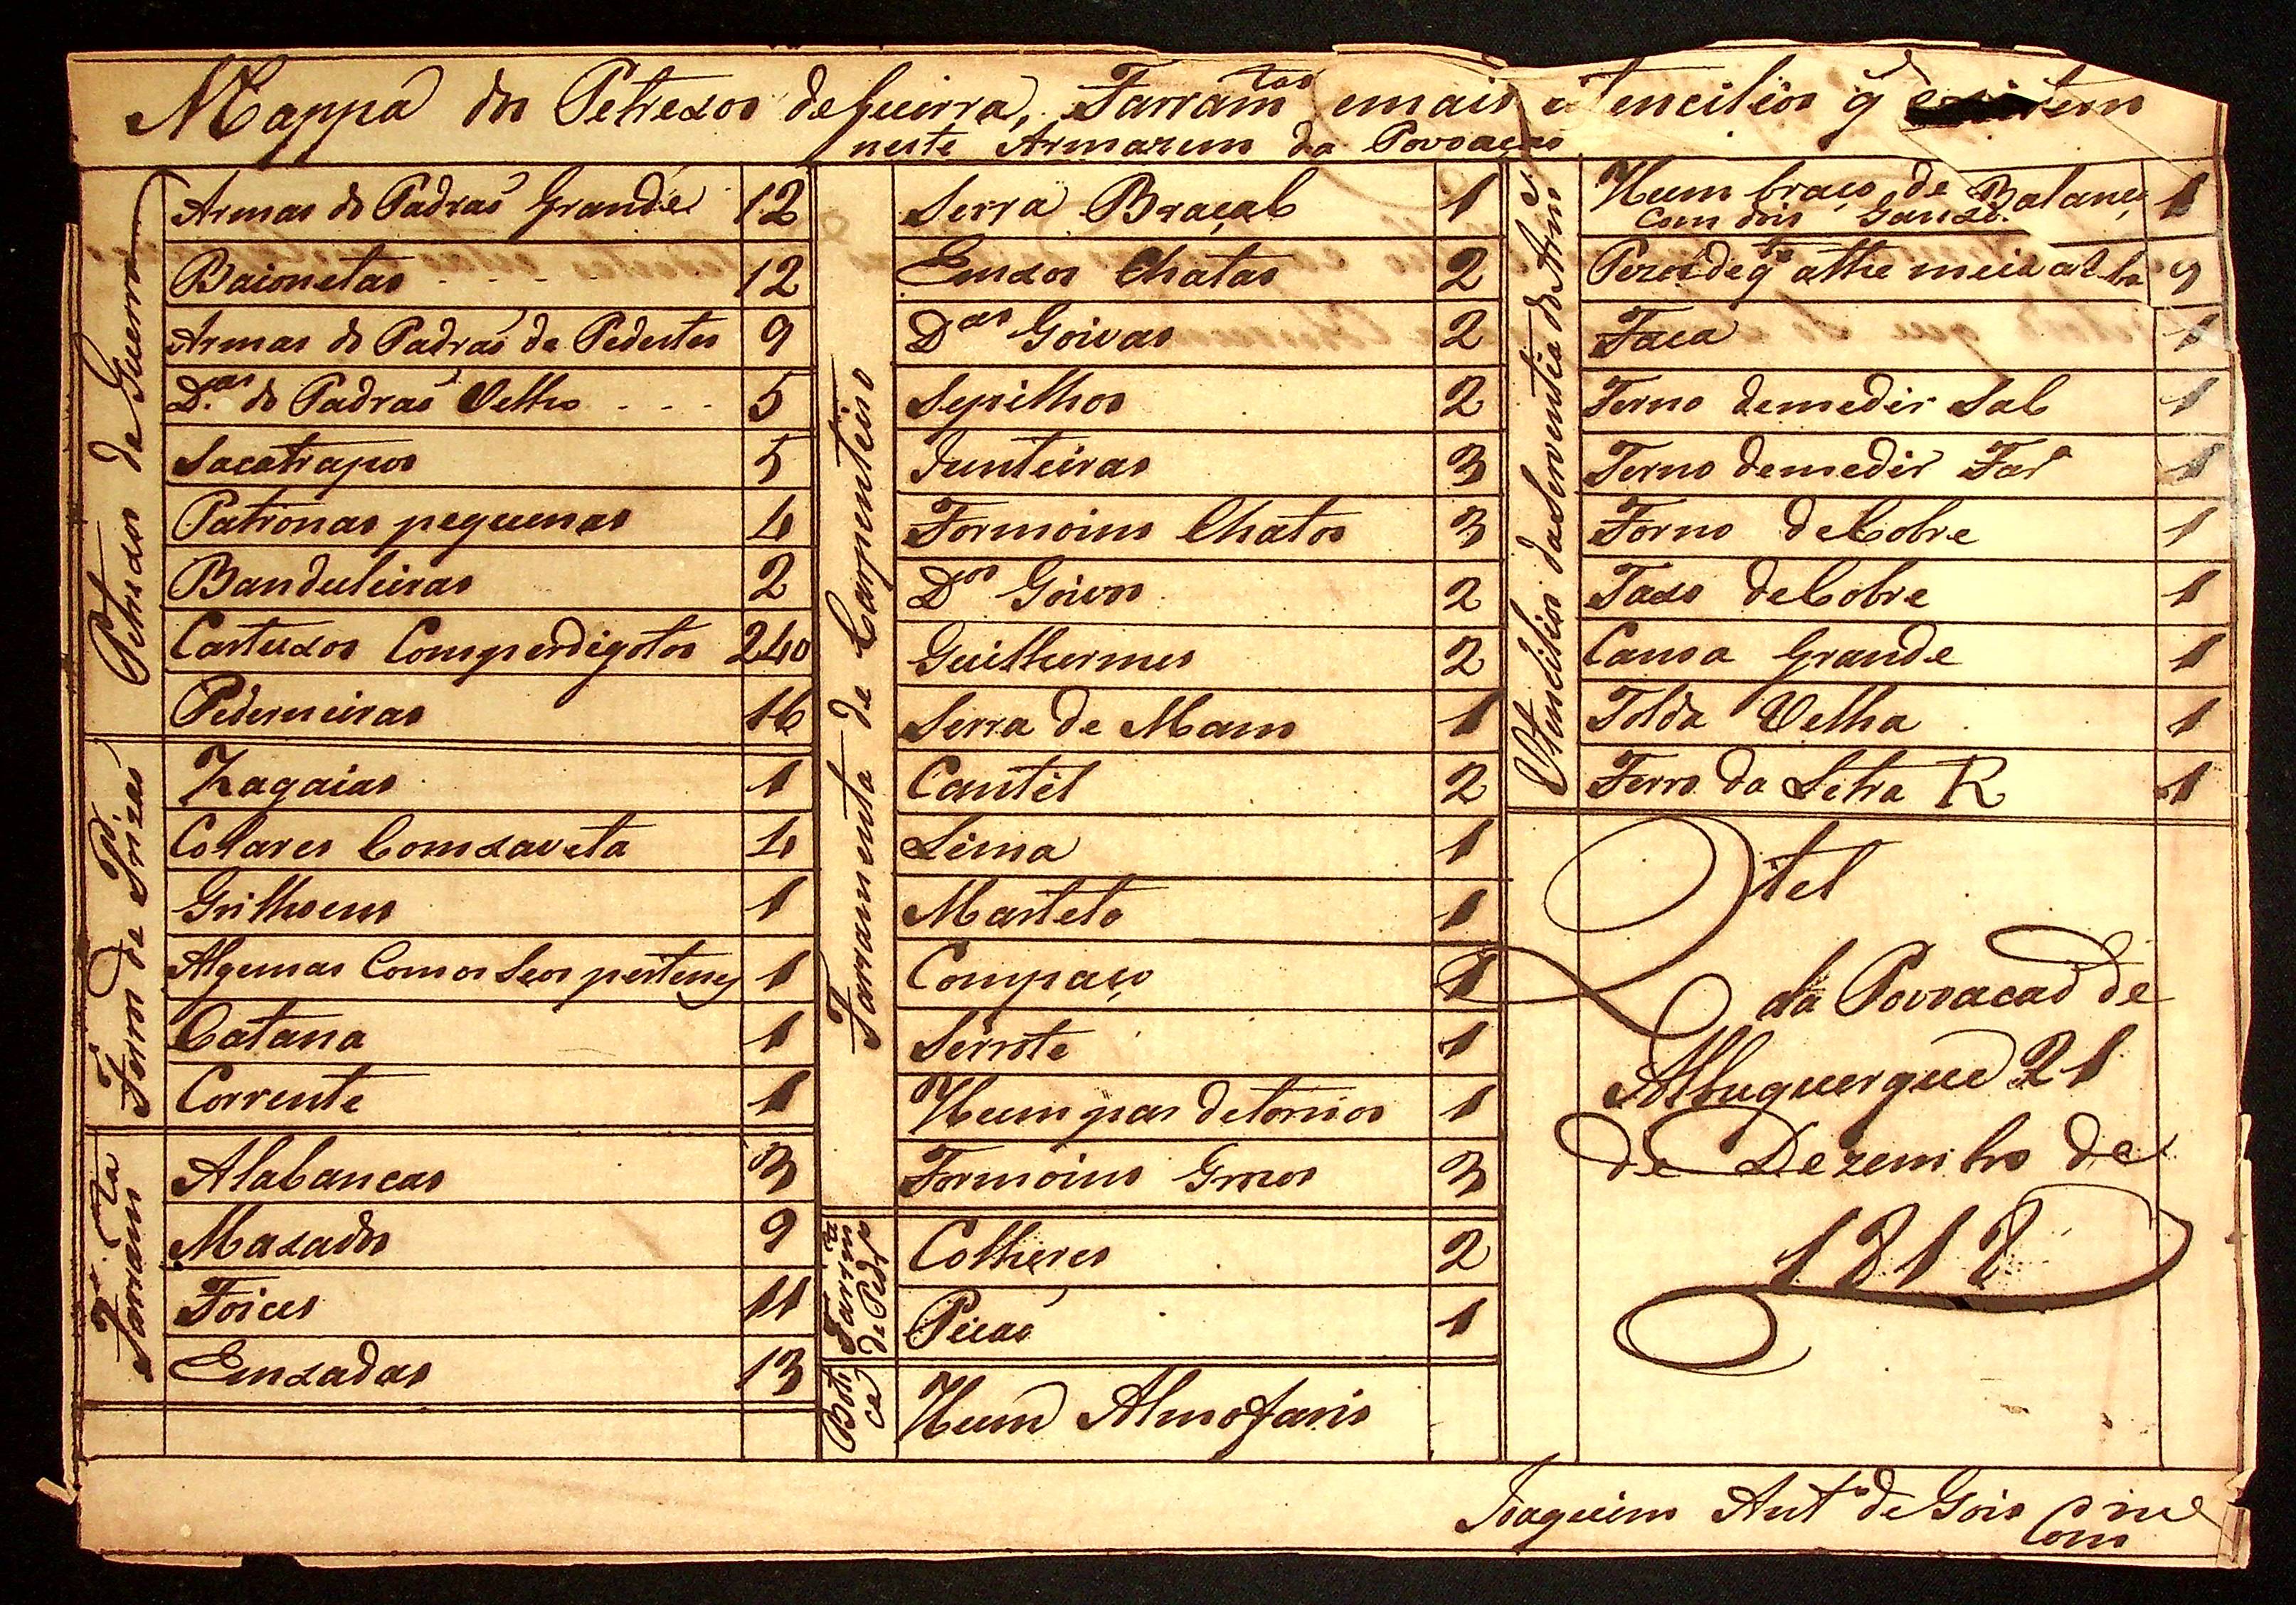 Mappa dos Petrexos de Guerra, Farramtas emais utencilios q existem
neste Armazem da Povoação
Petrexos de Guerra
Armas do Padraó Grande 12
Baionetas - - - - 12
Armas do Padraó de Pedestes 9
D.as do Padraó Velho - - - 5
Sacatrapos 5
Patronas pequenas 4
Banduleiras 2
Cartuxos Comperdigotos 240
Pederneiras 16
Ferros de Prizaó
Zagaias 1
Colares Comxaveta 4
Grilhoens 1
Algemas Comos Seos pertens 1
Catana 1
Corrente 1
Farramta
Alabancas 3
Maxados 9
Foices 11
Enxadas 13
Farramenta de Carpinteiro
Serra Braçal 1
Enxos Chatas 2
Das Goivas 2
Sepilhos 2
Junteiras 3
Formoins Chatos 3
Dos Goivos 2
Guilhermes 2
Serra de Mam 1
Cantil 2
Lima 1
Martelo 1
Compaço 1
Serrote 1
Hum par detornos 1
Formoins Grosos 3
Farrmta de Pedro
Colheres 2
Picaó 1
Botica
Hum Almofaris
Utencilios da Serventia do Armm
Hum braço de Balança
Com dois Ganxos 1
athe meia 9
Faca 1
Terno demedir Sal 1
Terno demedir Fara 1
Forno deCobre 1
Taxo deCobre 1
Canoa Grande 1
Tolda Velha 1
Ferro da Letra R 1
Qtel
da Povoacaó de
Albuquerque 21
de Dezembro de
1818
Joaquim Anto de Gois
Com